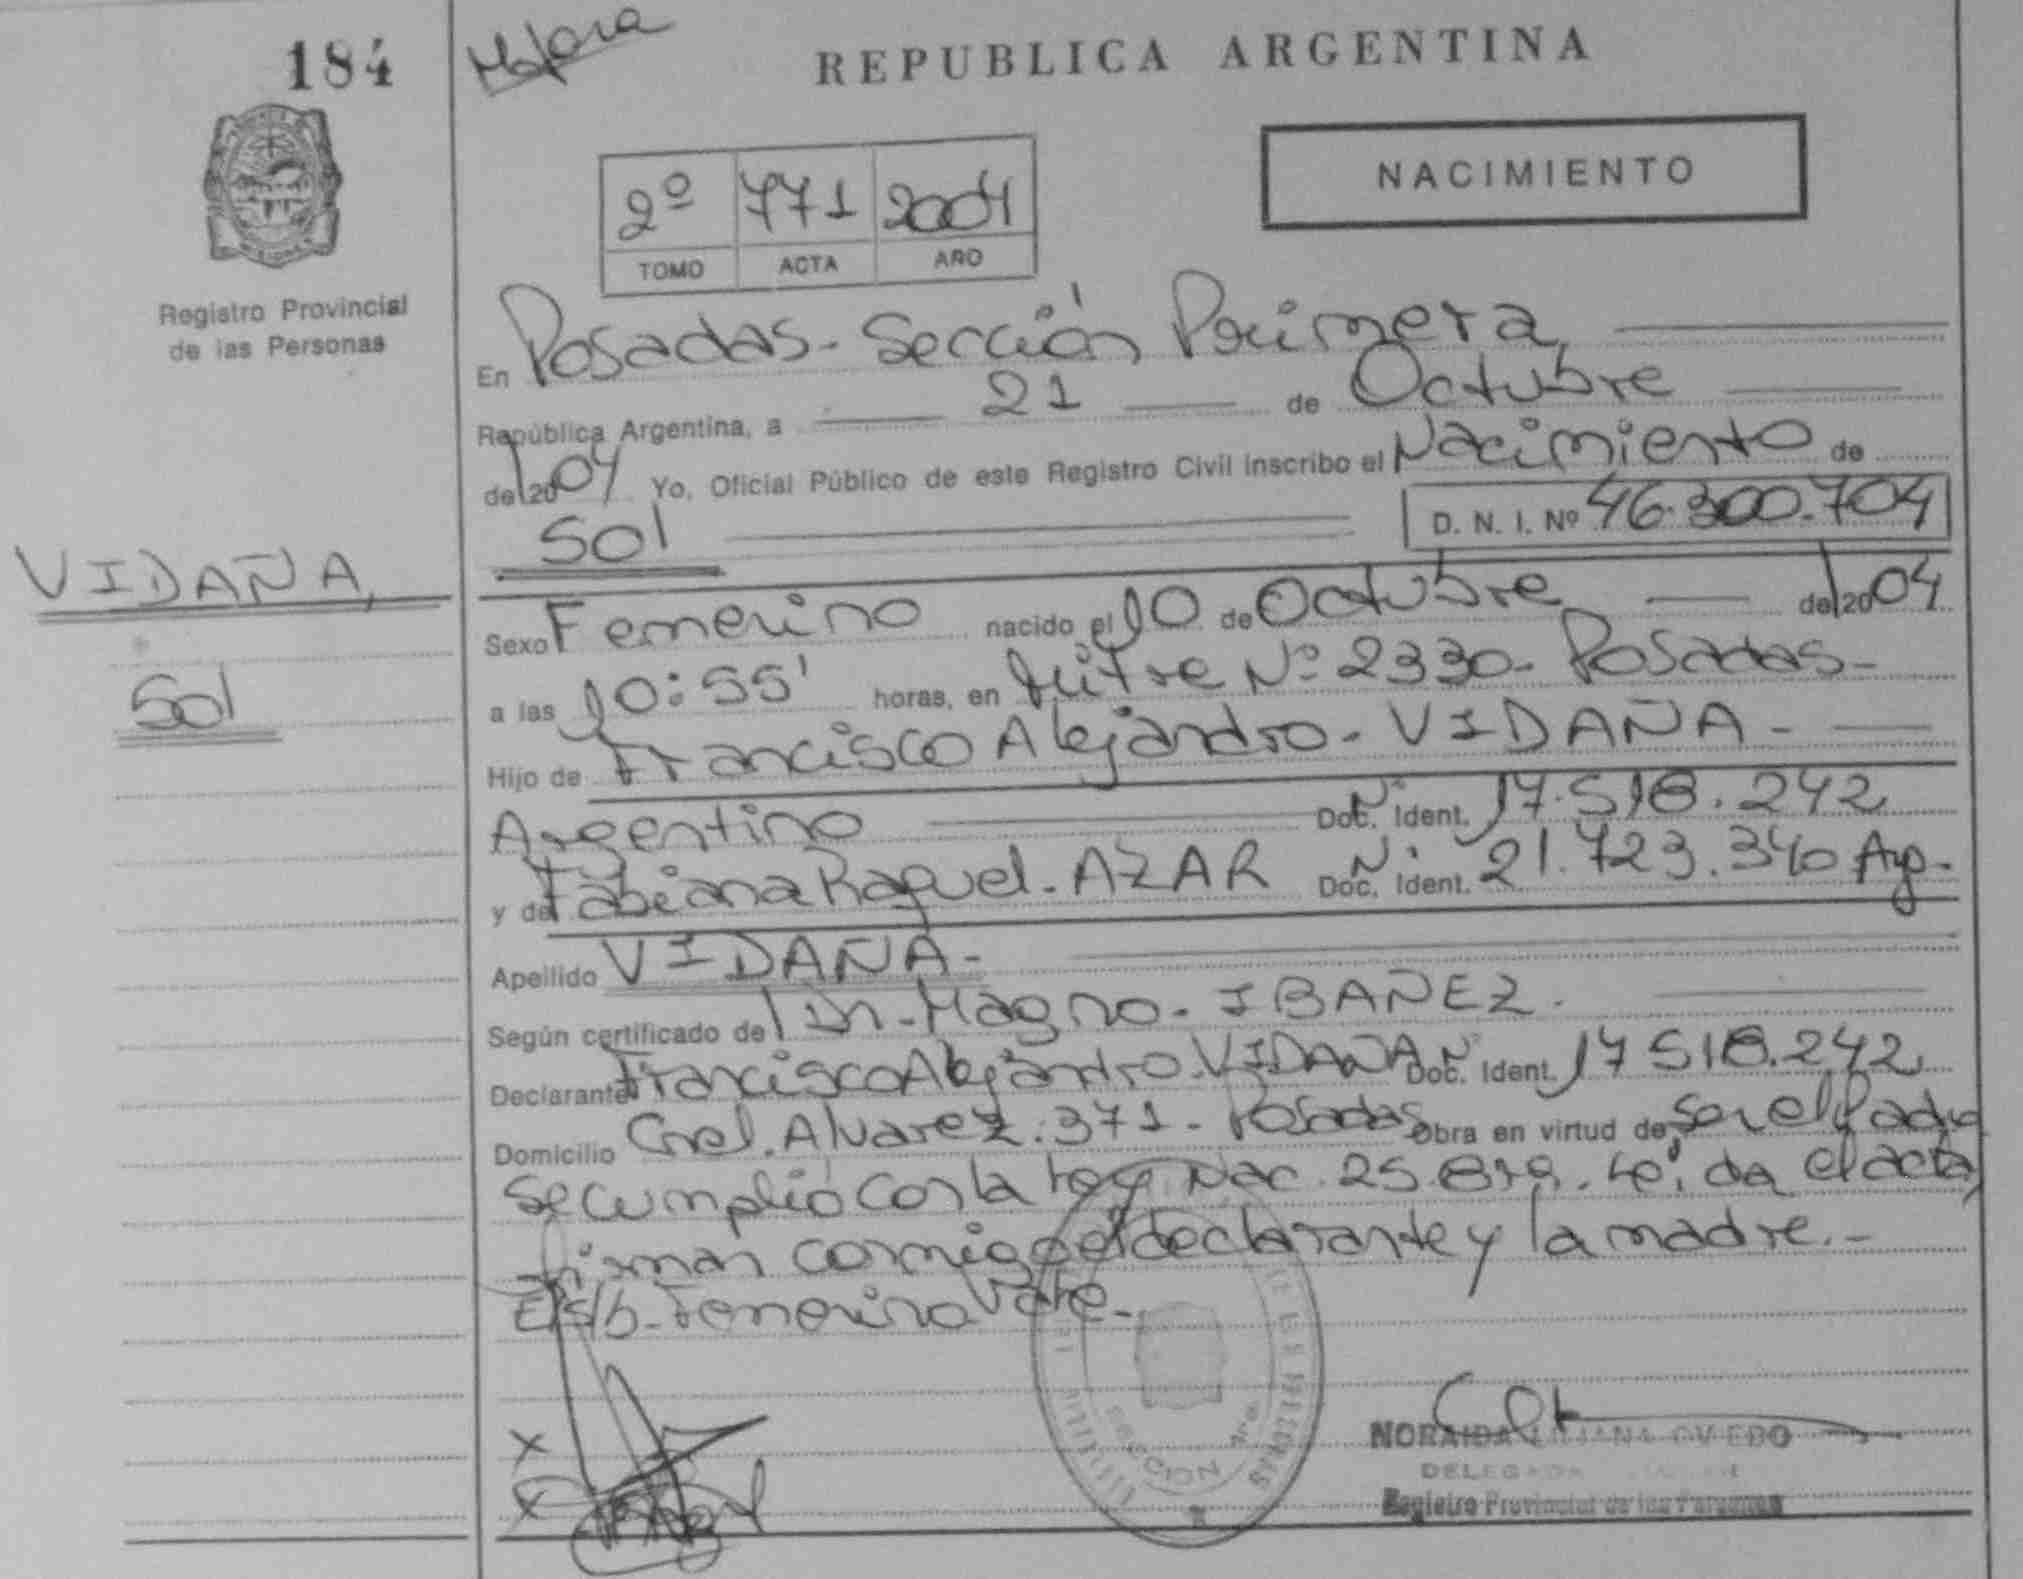 184
REPUBLICA ARGENTINA
NACIMIENTO
2º 771 2004
TOMO ACTA AÑO
Registro Provincial
de las Personas
En Posadas - Sección Primera
República Argentina, a 21 de Octubre
del 2004 Yo, Oficial Público de este Registro Civil inscribo el Nacimiento de
Sol D. N. I. Nº 46.300.704
VIDAÑA,
Sol
Sexo Femenino nacido el 10 de Octubre del 2004
a las 10:55' horas, en Mitre Nº 2330 - Posadas -
Hijo de Francisco Alejandro - VIDAÑA -
Argentino Doc. Nº Ident. 17.518.242
y de Fabiana Raquel - AZAR Doc. Nº Ident. 21.723.340 Arg -
Apellido VIDAÑA -
Según certificado de Dr - Magno - IBAÑEZ -
Declarante Francisco Alejandro VIDAÑA Doc. Nº Ident. 17518.242
Domicilio Cnel. Alvarez. 371 - Posadas Obra en virtud de Ser el Padre
Se cumplió con la Ley Nac. Leída el acta
firman conmigo el declarante y la madre. -
E/s/b - Femenino Vale -
SECCION
NORAIDA LILIANA OVIEDO
DELEGADA
Registro Provincial de las Personas